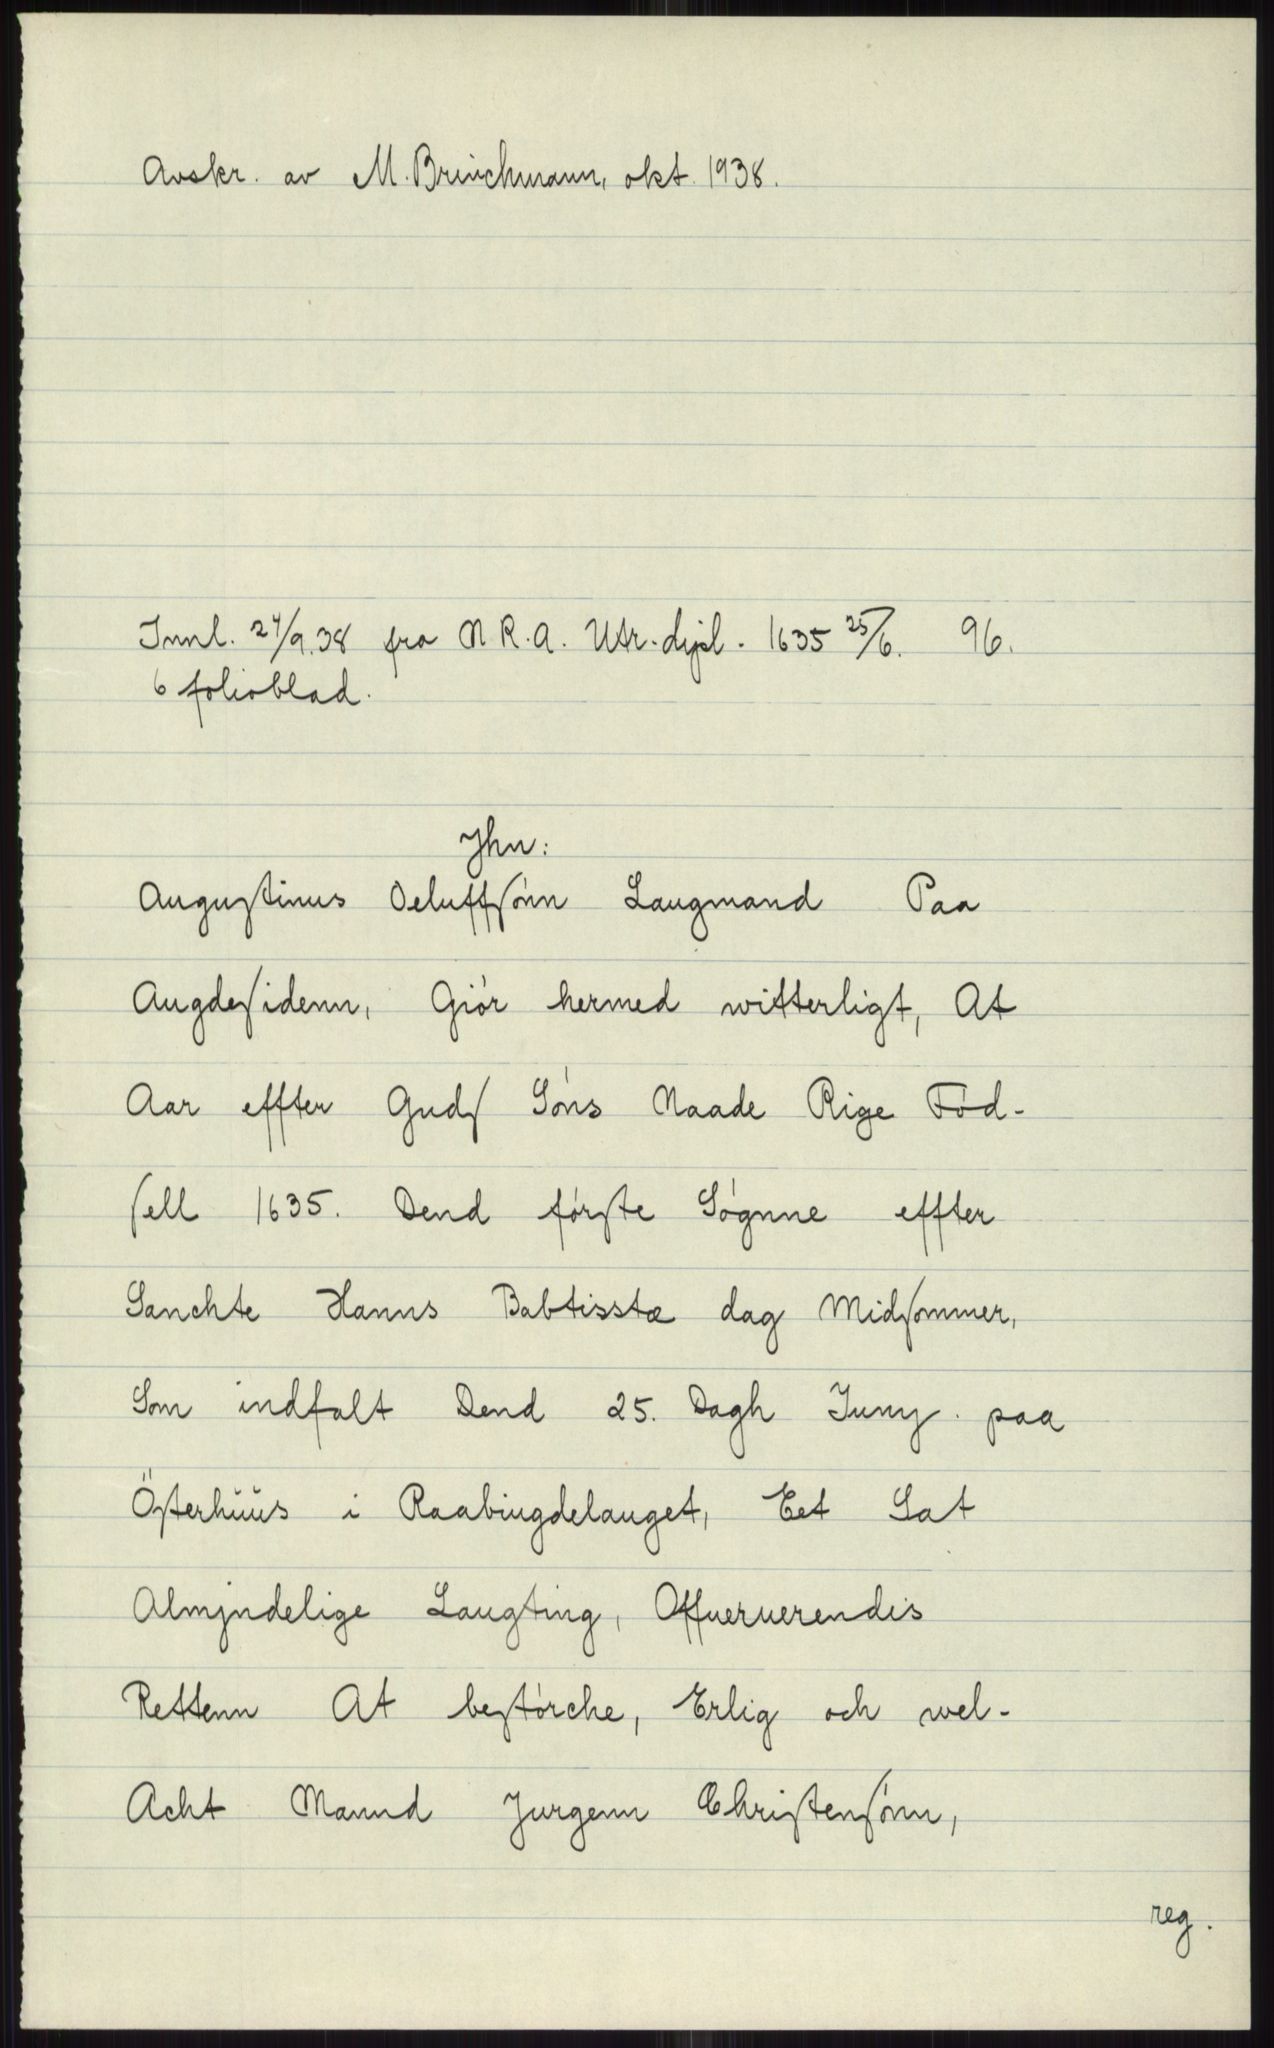 Avskr. av M. Brinchmann, okt. 1938.
Innl. 24/9.38 fra N.R.A. Utr.dipl. 1635 25/6. 96.
6 folioblad.
Jhn:
Augustinus Oeluffsónn Laugmand Paa
Augdesidenn, Giór hermed witterligt, At
Aar effter Guds Sóns Naade Rige Fód-
sell 1635. Dend fórste Sógnne effter
Sanchte Hanns Babtisstæ dag Midsommer,
Som indfalt Dend 25. Dagh Juny. paa
Östcrhüüs i Raabingdelauget, Eet Sat
Almjndelige Laugting, Offueruerendis
Rettenn At bestórche, Erlig och wel-
Acht Mannd Jurgenn Christensónn,
reg.